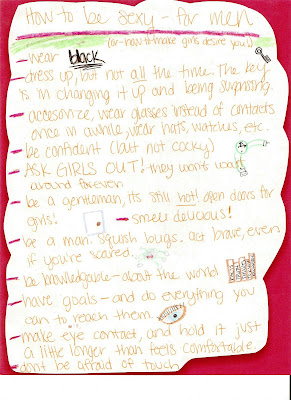 How to be sexy - for men
(or - how to make girls desire you!)
- wear black
- dress up, but not all the time. The key
is in changing it up and being surprising.
- accesorize, wear glasses instead of contacts
once in awhile, wear hats, watches, etc.
- be confident (but not cocky)
- ASK GIRLS OUT! they won't wait
around forever.
- be a gentleman, its still hot! open doors for
girls!
- smell delicious!
- be a man. squish bugs. act brave, even
if you're scared.
- be knowledgable - about the world
- have goals - and do everything you
can to reach them.
- make eye contact, and hold it just
a little longer than feels comfortable.
- dont be afraid of touch